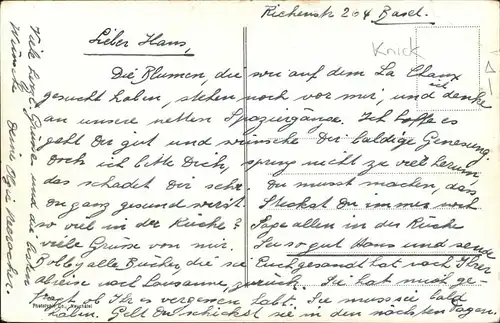 Richenstr 204 Basel.
Knick
Lieber Hans,
Die Blumen, die wir auf dem La Chaux
gesucht haben, stehen noch vor mir, und ich denke
an unsere netten Spaziergänge. Ich hoffe es
geht Dir gut und wünsche Dir baldige Genesung.
Doch ich bitte Dich, spring nicht zu viel herum,
das schadet Dir sehr. Du musst machen, dass
Du ganz gesund wirst. Steckst Du immer noch
so viel in der Küche? Sage allen in der Küche
viele Grüsse von mir. Sei so gut Hans und sende
alle Bücher, die sie Euch gesandt hat nach Ihrer
abreise nach Lausanne, zurück. Sie hat mich ge-
fragt ob Ihr es vergessen habt. Sie muss sie bald
haben. Gelt Du schickst sie in den nächsten Tagen
Viele herzl. Grüsse und die besten
Wünsche Deine